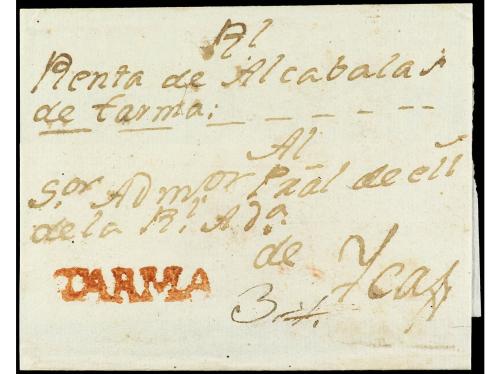 Rl
Renta de Alcabalas
de tarma:
Al
Sor. Admor Pral de ell
de la Rl. Ada.
de Ycas
TARMA
3